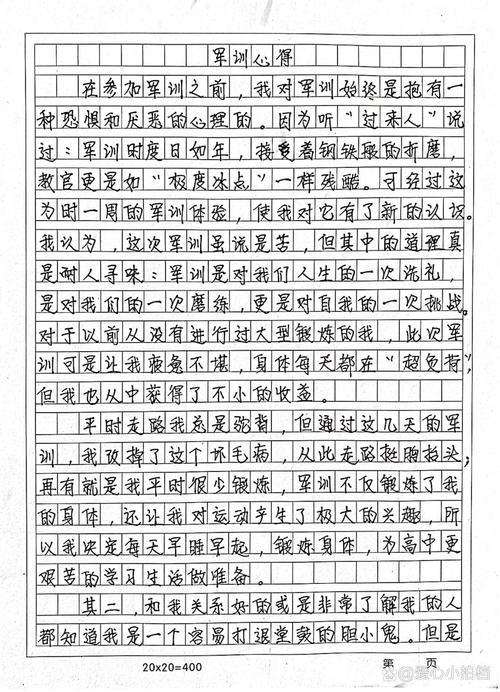 军训心得
在参加军训之前，我对军训始终是抱有一
种恐惧和厌恶的心理的。因为听“过来人”说
过：军训时度日如年，接受着钢铁般的折磨，
教官更是如“极度冰点”一样残酷。可经过这
为时一周的军训体验，使我对它有了新的认识。
我认为，这次军训虽说是苦，但其中的道理真
是耐人寻味：军训是对我们人生的一次洗礼，
是对我们的一次磨练，更是对自我的一次挑战。
对于以前从没有进行过大型锻炼的我，此次军
训可是让我疲惫不堪，身体每天都在“超负荷”，
但我也从中获得了不小的收益。
平时走路我总是弱背，但通过这几天的军
训，我改掉了这个坏毛病，从此走路挺胸抬头；
再有就是我平时很少锻炼，军训不仅锻炼了我
的身体，还让我对运动产生了极大的兴趣，所
以我决定每天早睡早起，锻炼身体，为高中更
艰苦的学习生活做准备。
其二，和我关系好的或是非常了解我的人
都知道我是一个容易打退堂鼓的胆小鬼。但是
20×20=400 第 页
爱心小拍档